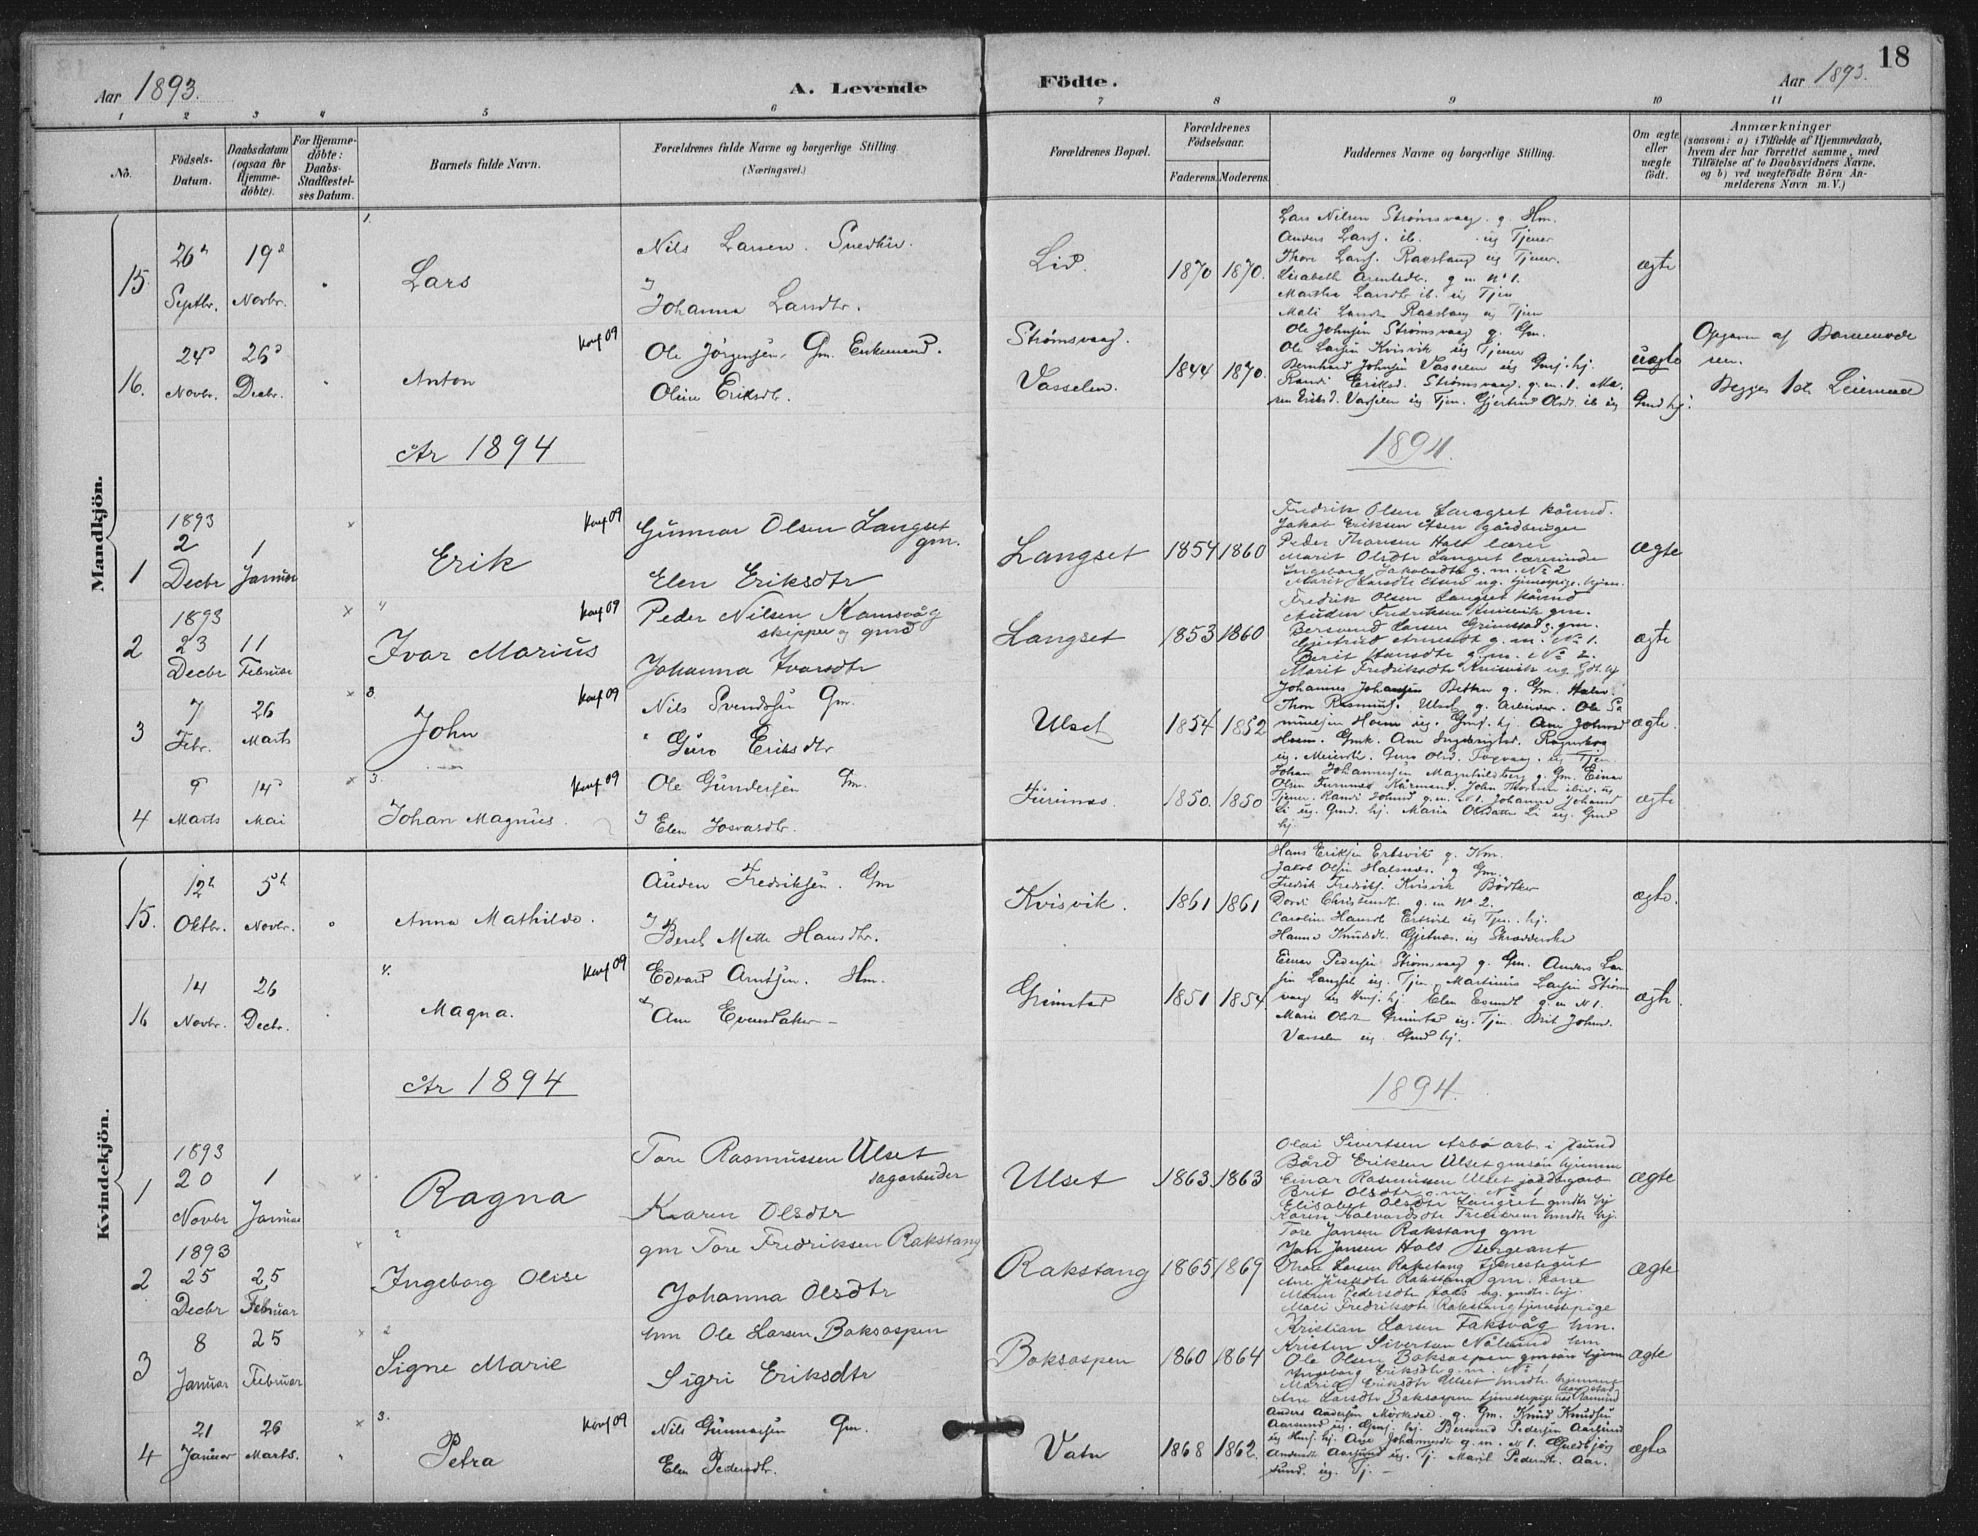 18
Aar 1893.
A. Levende Födte.
Aar 1893.
1 2 3 4 5 6 7 8 9 10 11
No.
Födsels-Datum.
Daabsdatum (ogsaa för Hjemme-döbte).
For Hjemme-döbte: Daabs-Stadfæstel-ses Datum.
Barnets fulde Navn.
Forældrenes fulde Navne og borgerlige Stilling
(Næringsvei.)
Forældrenes Bopæl.
Forældrenes Födselsaar.
Faderens. Moderens.
Faddernes Navne og borgerlige Stilling.
Om ægte eller uægte födt.
Anmærkninger
(saasom: a) i Tilfælde af Hjemmedaab,
hvem der har forrettet samme, med
Tilföielse af to Daabsvidners Navne,
og b) ved uægtefödte Börn An-
melderens Navn m. V.)
Mandkjön.
15 26 Septbr. 19 Novbr.
1.
Lars
Nils Larsen.
Johanna Larsdtr.
Lid.
1870 1870.
Lars Nilsen Strømsvaag. g. Hm.
Anders Lars. ib. ug Tjener
Thore Lars. Rakstang ug Tjener.
Lisabeth g. m. No 1.
Martha Larsdtr ib. ug Tjen
Mali Larsdtr Rakstang ug Tjen
ægte
16. 24 Novbr. 26 Decbr.
Anton
Konf 09
Ole Jörgensen, Gm. Enkemand.
Oline Eriksdtr.
Strømsvaag.
Vasselen.
1844 1870.
Ole Johnsen Strømsvaag g. Gm.
Ole Larsen Kvisvik ug Tjener
Bernhard Johnsen Vasselen ug Gmsj. hj.
Randi Eriksd. Strømsvaag. g. m. 1. Ma-
ren Eriksd. Vasselen ug Tjen. Gjertrud Olsdt. ib ug
Gmd hj.
uægte
Opgivn af Barnemode
ren.
Begges 1ste Leiermaal
Ar 1894
1894.
1 1893 2 Decbr 1 Januar
Erik
Konf 09
Gunnar Olsen Langset
gm.
Elen Eriksdtr
Langset
1854 1860
Fredrik Olsen Langset kårmd.
Jakob Eriksen gårdbruger
Peder Thoresen Hals lærer
Marit Olsdtr Langset lærerinde
Ingeborg Jakobsdtr g. m. No 2
ægte
2 1893 23 Decbr 11 Februar
Ivar Marius
Konf 09
Peder Nilsen Ramsvåg
skipper og gmd
Johanna Ivarsdtr
Langset
1853 1860
Fredrik Olsen Langset kårmd
Auden Fredriksen Kvisvik gm.
Bersvend Larsen Grimstad g. gm.
Gjertrud Arnesdt g. m. No 1.
Berit Hansdtr g. m. No 2.
Marit Fredriksdtr Kvisvik ug Gdt. hj
ægte
3 7 Febr. 26 Marts
3.
John
Konf 09
Nils Svendsen Gm.
Guro Eriksdtr
Ulset
1854 1852
Johannes Johansen g. Gm. Halsn.
Thor Rasmus. Ulset g. Arbeider. Ole Sa-
muelsen Hoem ug. Gmsj. hj. Ane Johnsd
Hoem. Gmk. Ane Ingebrigtsd.
ug. Meierske. Guro Olsd. ug Tjen
ægte.
4 9 Marts 14 Mai
3.
Johan Magnus.
Konf 09
Ole Gundersen Gm.
Elen Josvasdtr.
Furunes.
1850. 1850
Johan Johannesen Magnhildberg g. Gm. Einar
Olsen Furunes Kårmand. John
Tjener. Randi Johnsd g. m. No 1. Johanna Johansd
Li ug. Gmd. hj. Maria Olsdatter Li ug. Gmd
hj.
ægte
Kvindekjön.
15. 12 Oktbr. 5 Novbr.
Anna Mathilde.
Auden Fredriksen. Gm
Beret Mette Hansdtr.
Kvisvik.
1861 1861
Hans Eriksen Ertsvik g. Km.
Jakob Olsen Halsnæs. g Gm.
Fredrik Fredriks. Kvisvik Bödker
Dordi Christensdt. g. m No 2.
Carolin Hansdt. Ertsvik ug Tjen. hj.
Hanna Knudsdt. Gjelnæs. ug Skrædderske
ægte.
16 14 Novbr. 26 Decbr.
4.
Magna.
Konf 09
Edvard Arntsen. Hm.
Ane Evensdatter
Grimstad
1851 1854.
Einar Pedersen Strømsvaag g. Gm. Anders Lar-
sen Langset ug. Tjen. Martinius Larsen Strøm
vaag ug Hmsj. hj. Elen g. m No 1.
Marie Olsdt Grimstad ug. Tjen. Brit Johnsd.
Vasselen ug. Gmd hj.
ægte.
Ar 1894
1894.
1 1893 20 Novbr 1 Januar
Ragna
Tore Rasmussen Ulset
sagarbeider
Karen Olsdtr
Ulset
1863 1863
Olai Sivertsen Asbö arb. i Xsund
Bård Eriksen Ulset gmsön hjemme
Einar Rasmussen Ulset
Brit Olsdtr g. m. No 1
Elisabet Olsdtr Langset gmdtr hj
Karen Halvardsdtr hmdtr hj.
ægte
2 1893 25 Decbr 25 Februar
2
Ingeborg Olise
gm Tore Fredriksen Rakstang
Johanna Olsdtr
Rakstang
1865 1869
Tore Jansen Rakstang gm
Jan Jansen Hals sergeant
Thore Larsen Rakstang tjenestegut
Ane Rakstang gm. kone
Maren Pedersdtr Hals ug. gmdtr. hj.
Mali Fredriksdtr Rakstang tjenestepige
ægte
3 8 Januar 25 Februar
2
Signe Marie
hm Ole Larsen Boksaspen
Sigri Eriksdtr
Boksaspen
1860 1864
Kristian Larsen Taksvåg hm.
Kristen Sivertsen Nålsund hm
Ole Olsen Boksaspen gmsön hjem
Ingeborg Eriksdtr g. m. No 1
Maria Eriksdtr Ulset hmdtr. hjemme
Ane Larsdtr Boksaspen tjenestepige
ægte
4 21 Januar 26 Marts.
3.
Petra
Konf 09
Nils Gunnarsen Gm.
Elen Pedersdtr.
Vatn
1868 1862.
Anders Andersen Mörkedal g. Gm. Knud Knudsen
Aarsund ug. Gmsj. hj. Bersvend Pedersen Aarsund
ug Hmsj. hj. Ane Johannesdtr g. m. No 1. Guldbjör
Andersdt Aarsund ug. Tj. Marit Pedersdtr. Aar-
sund. ug. Tj.
ægte